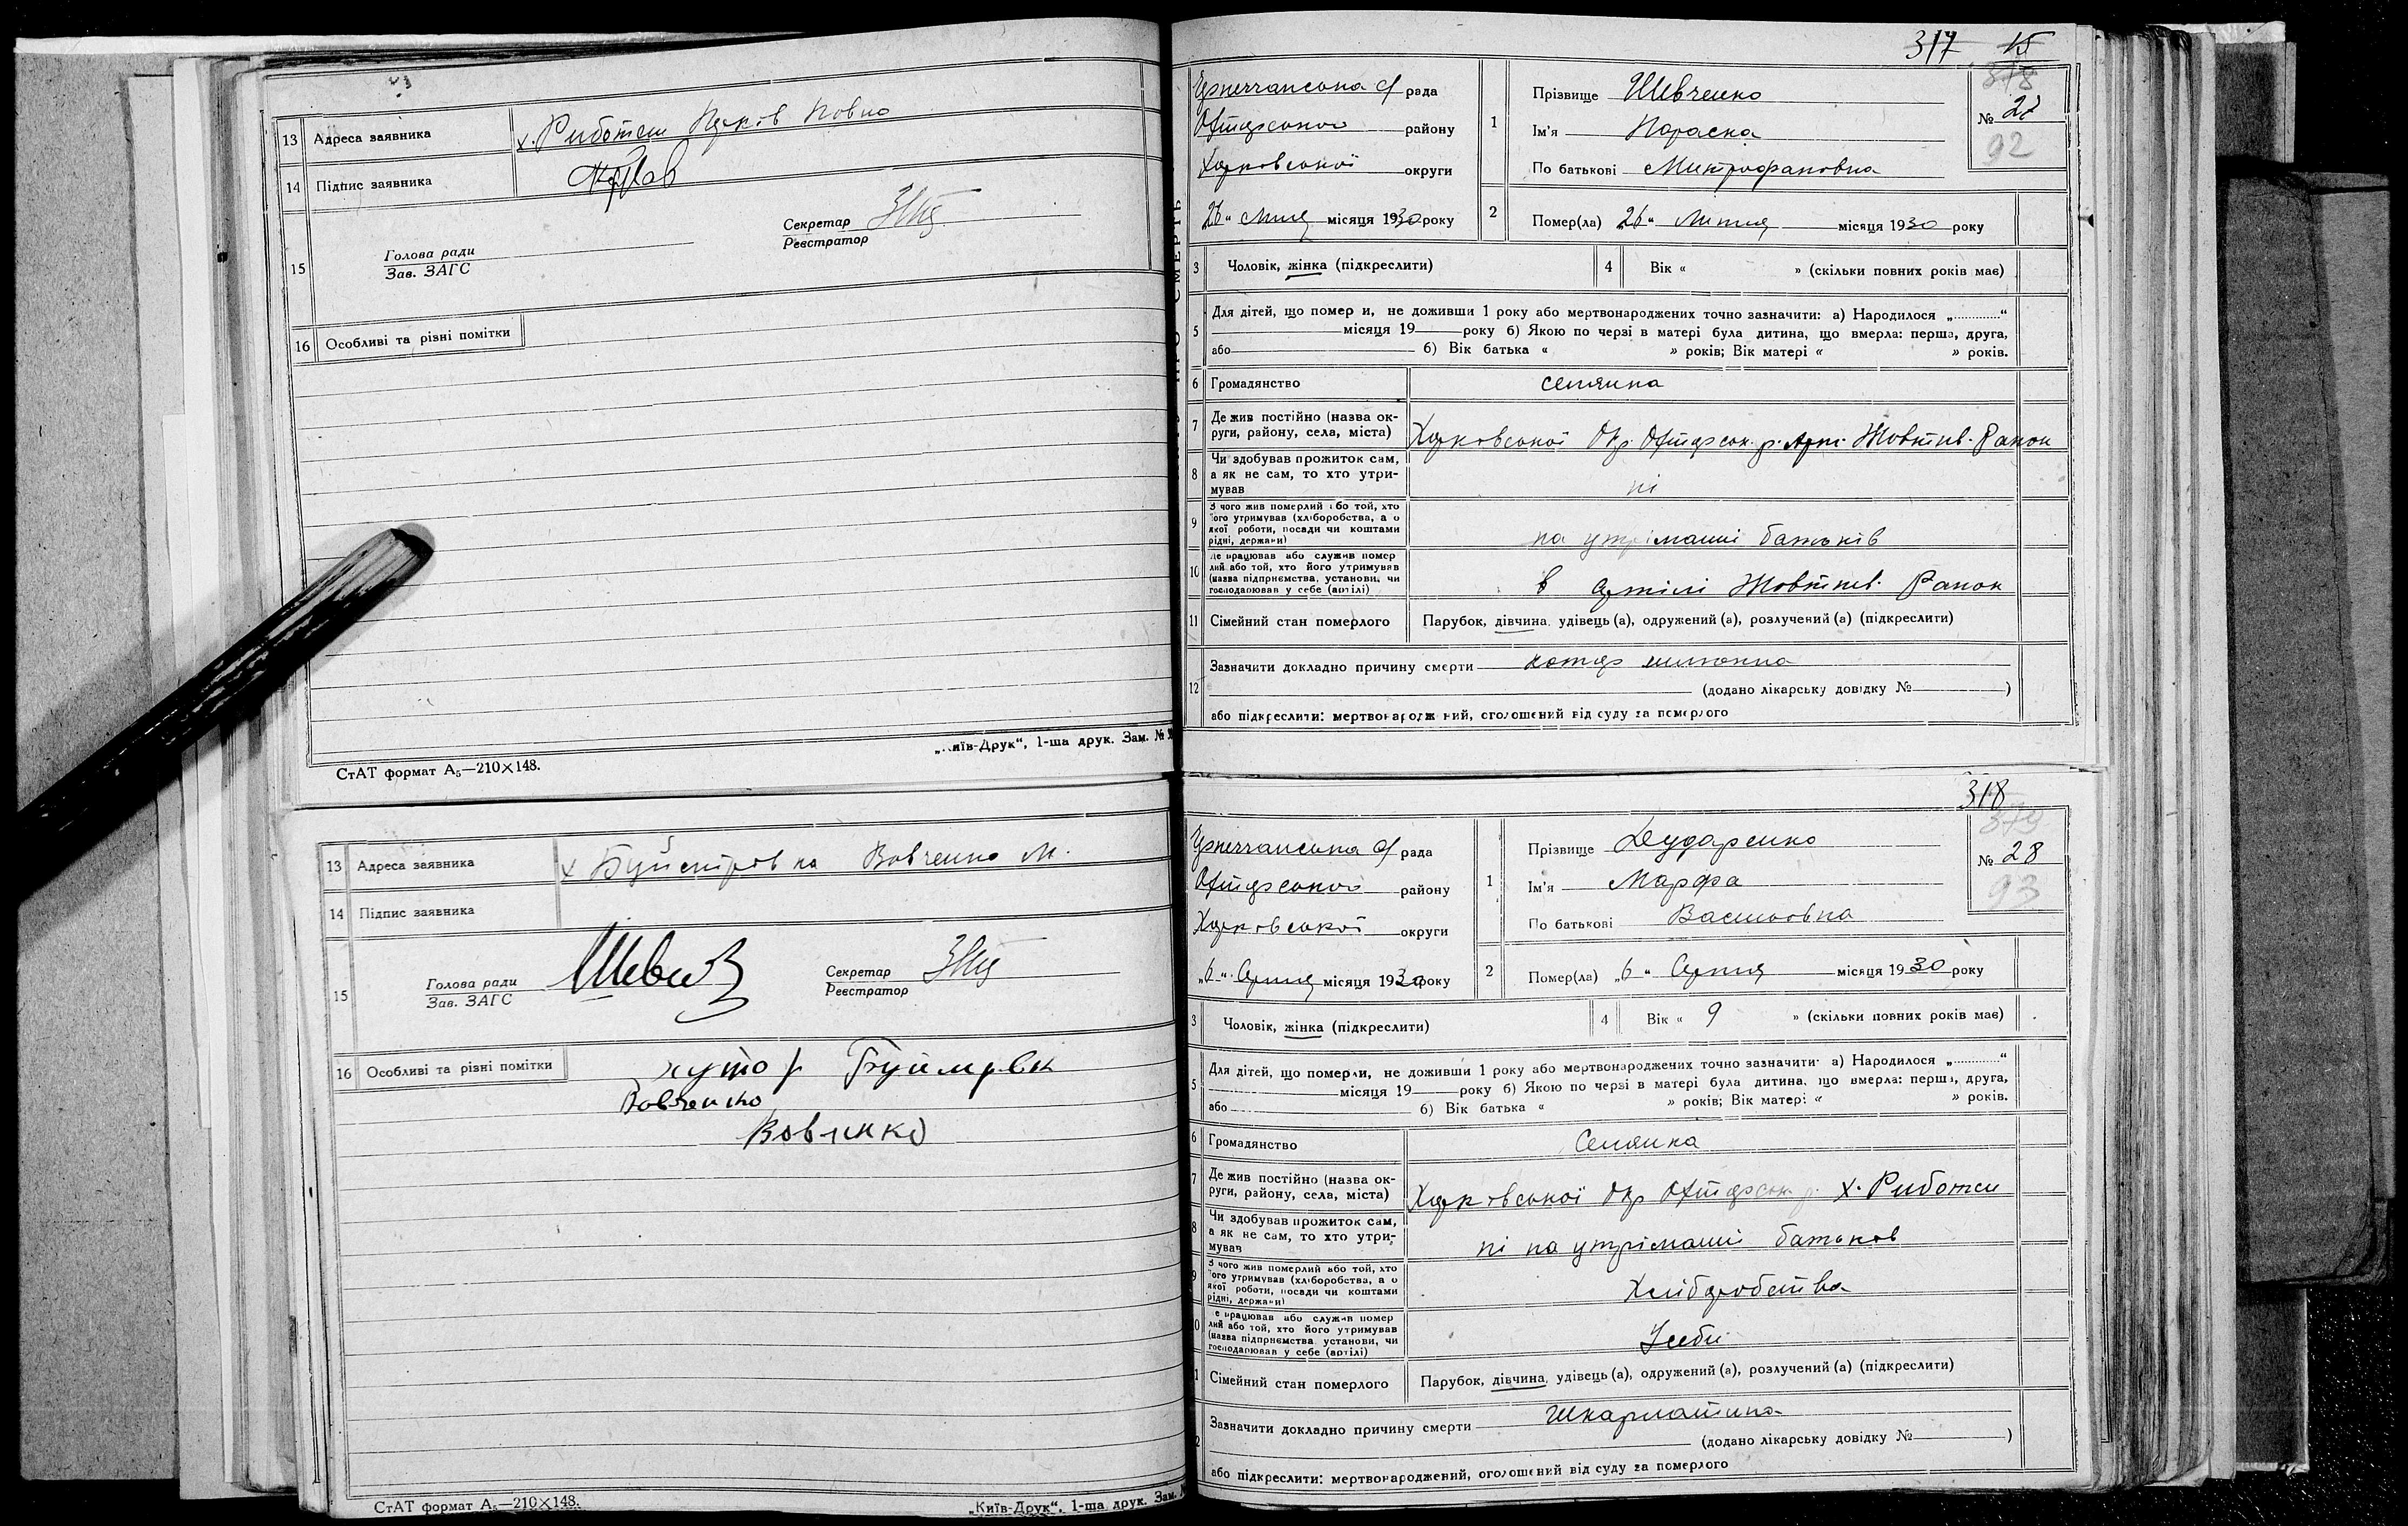 13 Адреса заявника х. Риботень Яков Повно
14 Підпис заявника
15 Голова ради
Зав. ЗАГС
Секретар
Реєстратор
16 Особливі та різні помітки
„Київ-Друк“, 1-ша друк. Зам. №
СтАТ формат А₅—210×148.
13 Адреса заявника х Буймеровка Вовченко М.
14 Підпис заявника
15 Голова ради
Зав. ЗАГС
Секретар
Реєстратор
16 Особливі та різні помітки хутор
Вовченко
Вовченко
СтАТ формат А₅—210×148.
„Київ-Друк“, 1-ша друк. Зам.
317 15
рада
Охтирського району
Харковської округи
„26“ Липня місяця 1930 року
1 Прізвище Шевченко
Ім'я Параска
По батькові Митрофановна
378
№ 27
92
2 Помер(ла) „26“ Липня місяця 1930 року
3 Чоловік, жінка (підкреслити)
4 Вік « » (скільки повних років має)
5 Для дітей, що помер и, не доживши 1 року або мертвонароджених точно зазначити: а) Народилося „............“
місяця 19 року б) Якою по черзі в матері була дитина, що вмерла: перша, друга,
або б) Вік батька « » років; Вік матері « » років.
6 Громадянство селянка
7 Де жив постійно (назва округи, району, села, міста) Харковської Окр. Охтирськ. р. Арт. Жовтнев. Ранок
8 Чи здобував прожиток сам,
а як не сам, то хто утри-
мував ні
9 З чого жив померлий або той, хто
його утримував (хліборобства, а о
якої роботи, посади чи коштами
рідні, держави) на утріманні батьків
10 Де працював або служив помер
лий або той, хто його утримував
(назва підприємства, установи, чи
господарював у себе (артілі) в Артілі Жовтнев. Ранок
11 Сімейний стан померлого Парубок, дівчина, удівець (а), одружений (а), розлучений (а) (підкреслити)
12 Зазначити докладно причину смерти
(додано лікарську довідку № )
або підкреслити: мертвонародж ний, оголошений від суду за померлого
318
рада
Охтирського району
Харковської округи
„6“ Серпня місяця 1930 року
1 Прізвище Дударенко
Ім'я Марфа
По батькові Василовна
379
№ 28
93
2 Помер(ла) „6“ Серпня місяця 1930 року
3 Чоловік, жінка (підкреслити)
4 Вік « 9 » (скільки повних років має)
5 Для дітей, що померли, не доживши 1 року або мертвонароджених точно зазначити: а) Народилося „............“
місяця 19 року б) Якою по черзі в матері була дитина, що вмерла: перша, друга,
або б) Вік батька « » років; Вік матері « » років.
6 Громадянство Селянка
7 Де жив постійно (назва округи, району, села, міста) Харковської Окр Охтирськ. р. х. Риботень
8 Чи здобував прожиток сам,
а як не сам, то хто утри-
мував ні на утріманні батьков
9 З чого жив померлий або той, хто
його утримував (хліборобства, а о
якої роботи, посади чи коштами
рідні, держави) Хліборобства
е працював або служив помер
лий або той, хто його утримував
(назва підприємства, установи, чи
господарював у себе (артілі) У себе
Сімейний стан померлого Парубок, дівчина, удівець (а), одружений (а), розлучений (а) (підкреслити)
Зазначити докладно причину смерти Шкарлатина
(додано лікарську довідку № )
або підкреслити: мертвонароджений, оголошений від суду за померлого